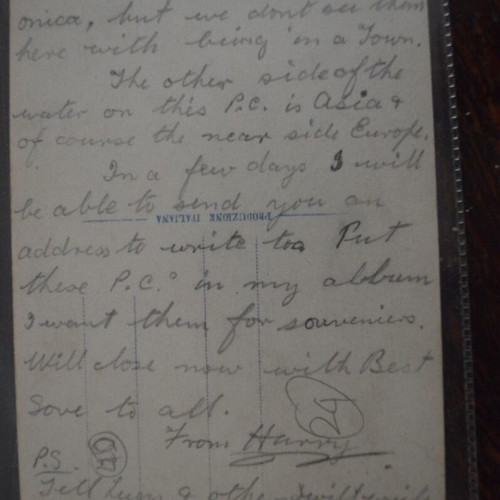 onica, but we dont see them
here with being in a Town.
The other side of the
water on this P.C. is Asia &
of course the near side Europe.
In a few days I will
be able to send you an
PRODUZIONE ITALIANA
address to write too Put
these P.C.s in my albbum
I want them for souveniers.
Will close now with Best
Love to all.
24
From Harry
P.S.
Tell &